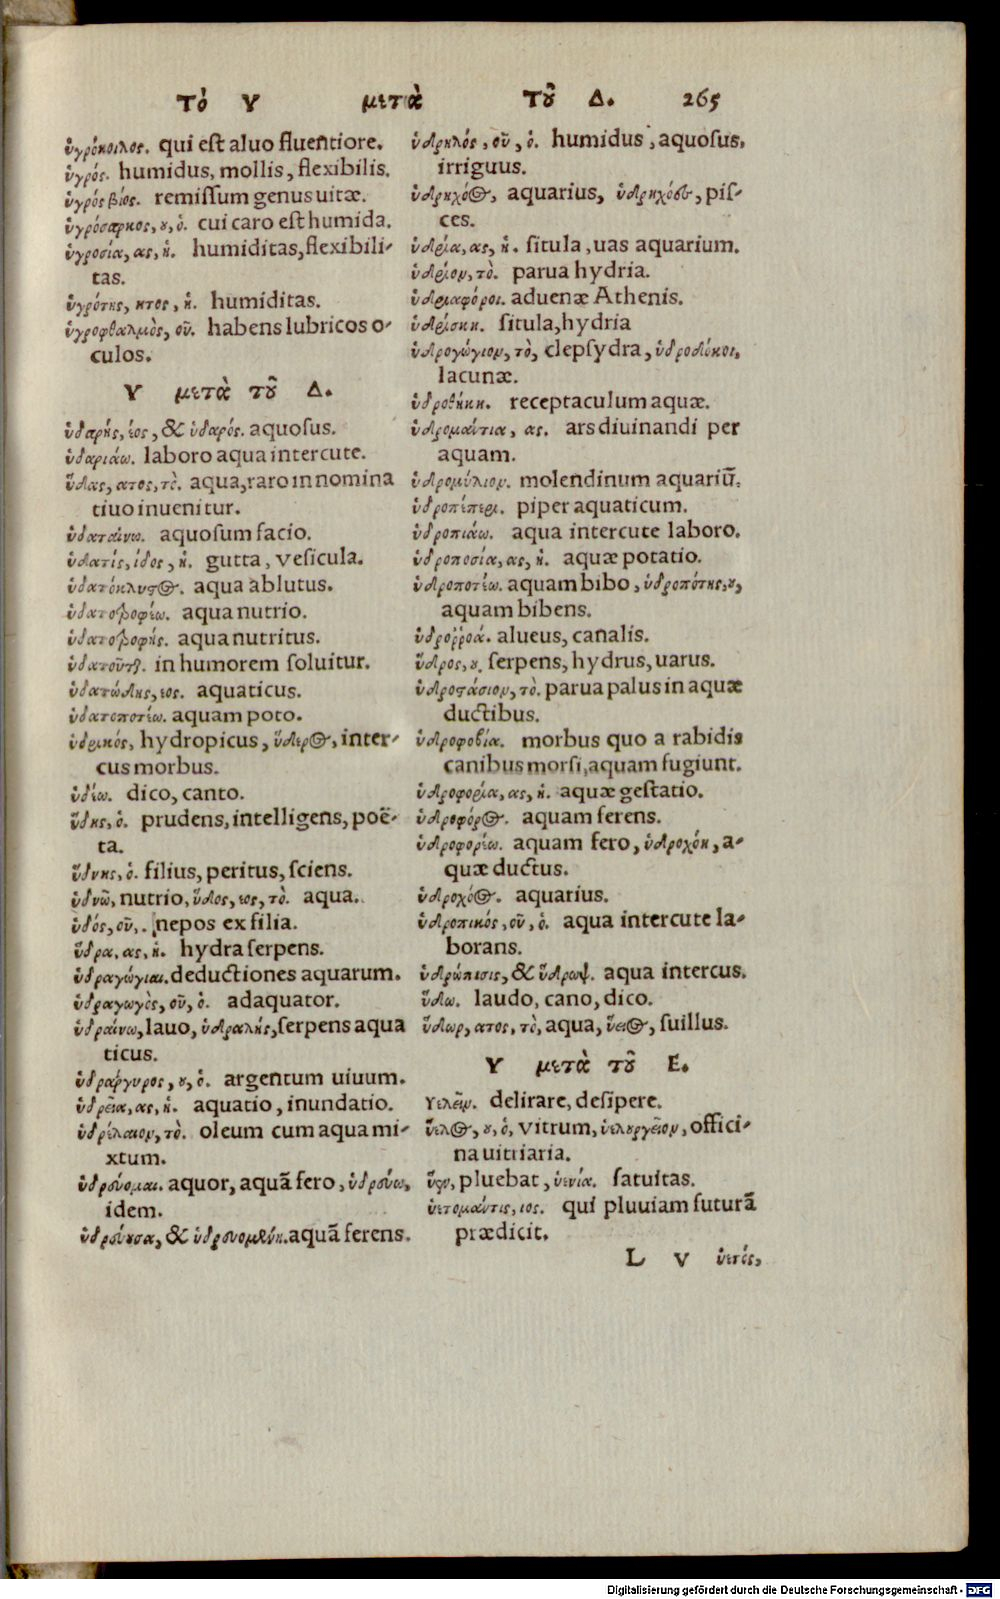 Τὸ Υ μετὰ τοῦ Δ. 265
ὑγρόκοιλος. qui est aluo fluentiore.
ὑγρός. humidus, mollis, flexibilis.
ὑγρός βίος. remissum genus uitæ.
ὑγρόσαρκος, ου, ὁ. cui caro est humida.
ὑγροσία, ας, ἡ. humiditas, flexibili-
tas.
ὑγρότης, ητος, ἡ. humiditas.
ὑγροφθαλμὸς, οῦ. habens lubricos o-
culos.
Υ μετὰ τοῦ Δ.
ὑδαρής, έος, & ὑδαρός. aquosus.
ὑδαριάω. laboro aqua intercute.
ὕδας, ατος, τὸ. aqua, raro in nomina
tiuo inuenitur.
ὑδαταίνω. aquosum facio.
ὑδατίς, ίδος, ἡ. gutta, vesicula.
ὑδατόκλυστος. aqua ablutus.
ὑδατοτροφέω. aqua nutrio.
ὑδατοτροφής. aqua nutritus.
ὑδατοῦται. in humorem soluitur.
ὑδατώδης, εος. aquaticus.
ὑδατοποτέω. aquam poto.
ὑδερικός, hydropicus, ὕδερος, inter-
cus morbus.
ὑδέω. dico, canto.
ὕδης, ὁ. prudens, intelligens, poë-
ta.
ὕδνης, ὁ. filius, peritus, sciens.
ὑδνῶ, nutrio, ὕδος, εος, τὸ. aqua.
ὑδός, οῦ,. nepos ex filia.
ὕδρα, ας, ἡ. hydra serpens.
ὑδραγώγιαι. deductiones aquarum.
ὑδραγωγὸς, οῦ, ὁ. adaquator.
ὑδραίνω, lauo, ὑδραλής, serpens aqua
ticus.
ὑδράργυρος, ου, ὁ. argentum uiuum.
ὑδρεία, ας, ἡ. aquatio, inundatio.
ὑδρέλαιον, τὸ. oleum cum aqua mi-
xtum.
ὑδρεύομαι. aquor, aquã fero, ὑδρεύω,
idem.
ὑδρεύουσα, & ὑδρευομένη. aquã ferens.
ὑδρηλός, οῦ, ὁ. humidus, aquosus,
irriguus.
ὑδρηχόος, aquarius, ὑδρηχόοι, pis-
ces.
ὑδρία, ας, ἡ. situla, uas aquarium.
ὑδρίον, τὸ. parua hydria.
ὑδριαφόροι. aduenæ Athenis.
ὑδρίσκη. situla, hydria
ὑδρογώγιον, τὸ, clepsydra, ὑδροδόκοι,
lacunæ.
ὑδροθήκη. receptaculum aquæ.
ὑδρομάντια, ας. ars diuinandi per
aquam.
ὑδρομύλιον. molendinum aquariũ.
ὑδροπέπερι. piper aquaticum.
ὑδροπιάω. aqua intercute laboro.
ὑδροποσία, ας, ἡ. aquæ potatio.
ὑδροποτέω. aquam bibo, ὑδροπότης, ου,
aquam bibens.
ὑδροῤῥοά. alueus, canalis.
ὕδρος, ου. serpens, hydrus, uarus.
ὑδροστάσιον, τὸ. parua palus in aquæ
ductibus.
ὑδροφοβία. morbus quo a rabidis
canibus morsi, aquam fugiunt.
ὑδροφορία, ας, ἡ. aquæ gestatio.
ὑδροφόρος. aquam ferens.
ὑδροφορέω. aquam fero, ὑδροχόη, a-
quæ ductus.
ὑδροχόος. aquarius.
ὑδροπικός, οῦ, ὁ. aqua intercute la-
borans.
ὑδρώπισις, & ὕδρωψ. aqua intercus.
ὕδω. laudo, cano, dico.
ὕδωρ, ατος, τὸ, aqua, ὕειος, suillus.
Υ μετὰ τοῦ Ε.
Υελεῖν. delirare, desipere.
ὕελος, ου, ὁ, vitrum, ὑελουργεῖον, offici-
na uitriaria.
ὗεν, pluebat, ὑενία. fatuitas.
ὑετομάντις, ιος. qui pluuiam futurã
prædicit.
L v ὑετός,
Digitalisierung gefördert durch die Deutsche Forschungsgemeinschaft - DFG